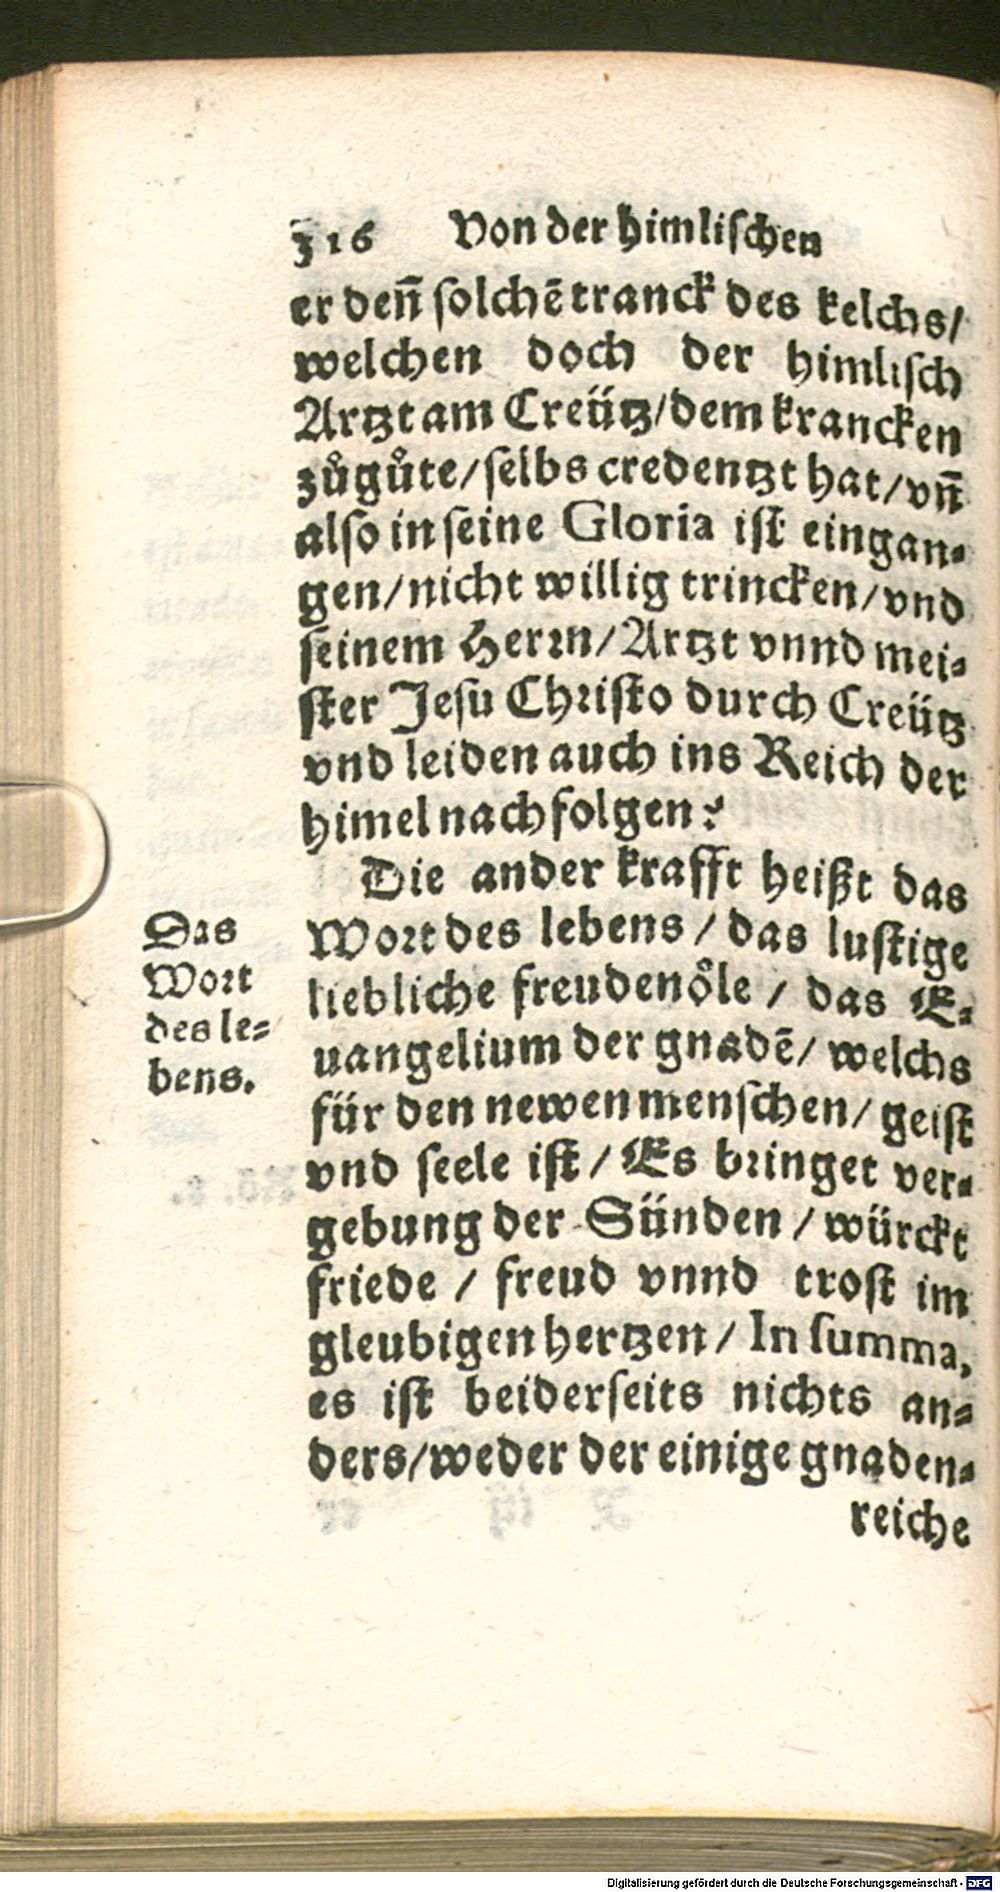 316 Von der himlischen
er deñ solchẽ tranck des kelchs/
welchen doch der himlisch
Artzt am Creütz/dem krancken
zůgůte/selbs credentzt hat/vñ
also in seine Gloria ist eingan-
gen/nicht willig trincken/vnd
seinem Herrn/Artzt vnnd mei-
ster Jesu Christo durch Creütz
vnd leiden auch ins Reich der
himel nachfolgen?
Die ander krafft heißt das
Wort des lebens/das lustige
liebliche freudenoͤle/das E-
uangelium der gnadẽ/welchs
für den newen menschen/geist
vnd seele ist/Es bringet ver-
gebung der Sünden/würckt
friede/freud vnnd trost im
gleubigen hertzen/In summa,
es ist beiderseits nichts an-
ders/weder der einige gnaden-
reiche
Das
Wort
des le-
bens.
Digitalisierung gefördert durch die Deutsche Forschungsgemeinschaft - DFG